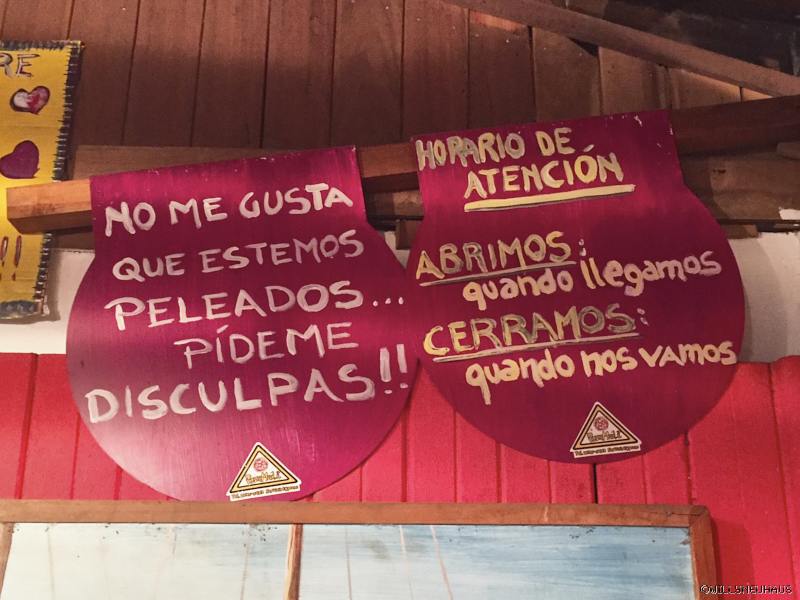 RE
!!
NO ME GUSTA
QUE ESTEMOS
PELEADOS...
PÍDEME
DISCULPAS!!
HORARIO DE
ATENCIÓN
ABRIMOS:
quando llegamos
CERRAMOS:
quando nos vamos
©WILLYNEUHAUS